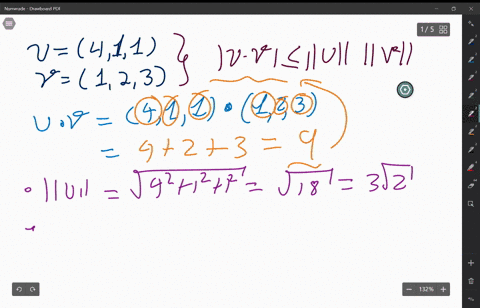 Numerade - Drawboard PDF
1 / 5
U = (4,1,1)
V = (1,2,3)
|U·V| ≤ ||U|| ||V||
U·V = (4,1,1)•(1,2,3)
= 4+2+3 = 9
• ||U|| = √4²+1²+1² = √18 = 3√2
•
132%